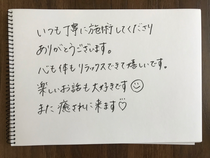 いつも丁寧に施術してくださり
ありがとうございます。
心も体もリラックスできて嬉しいです。
楽しいお話も大好きです☺
また癒されに来ます♡